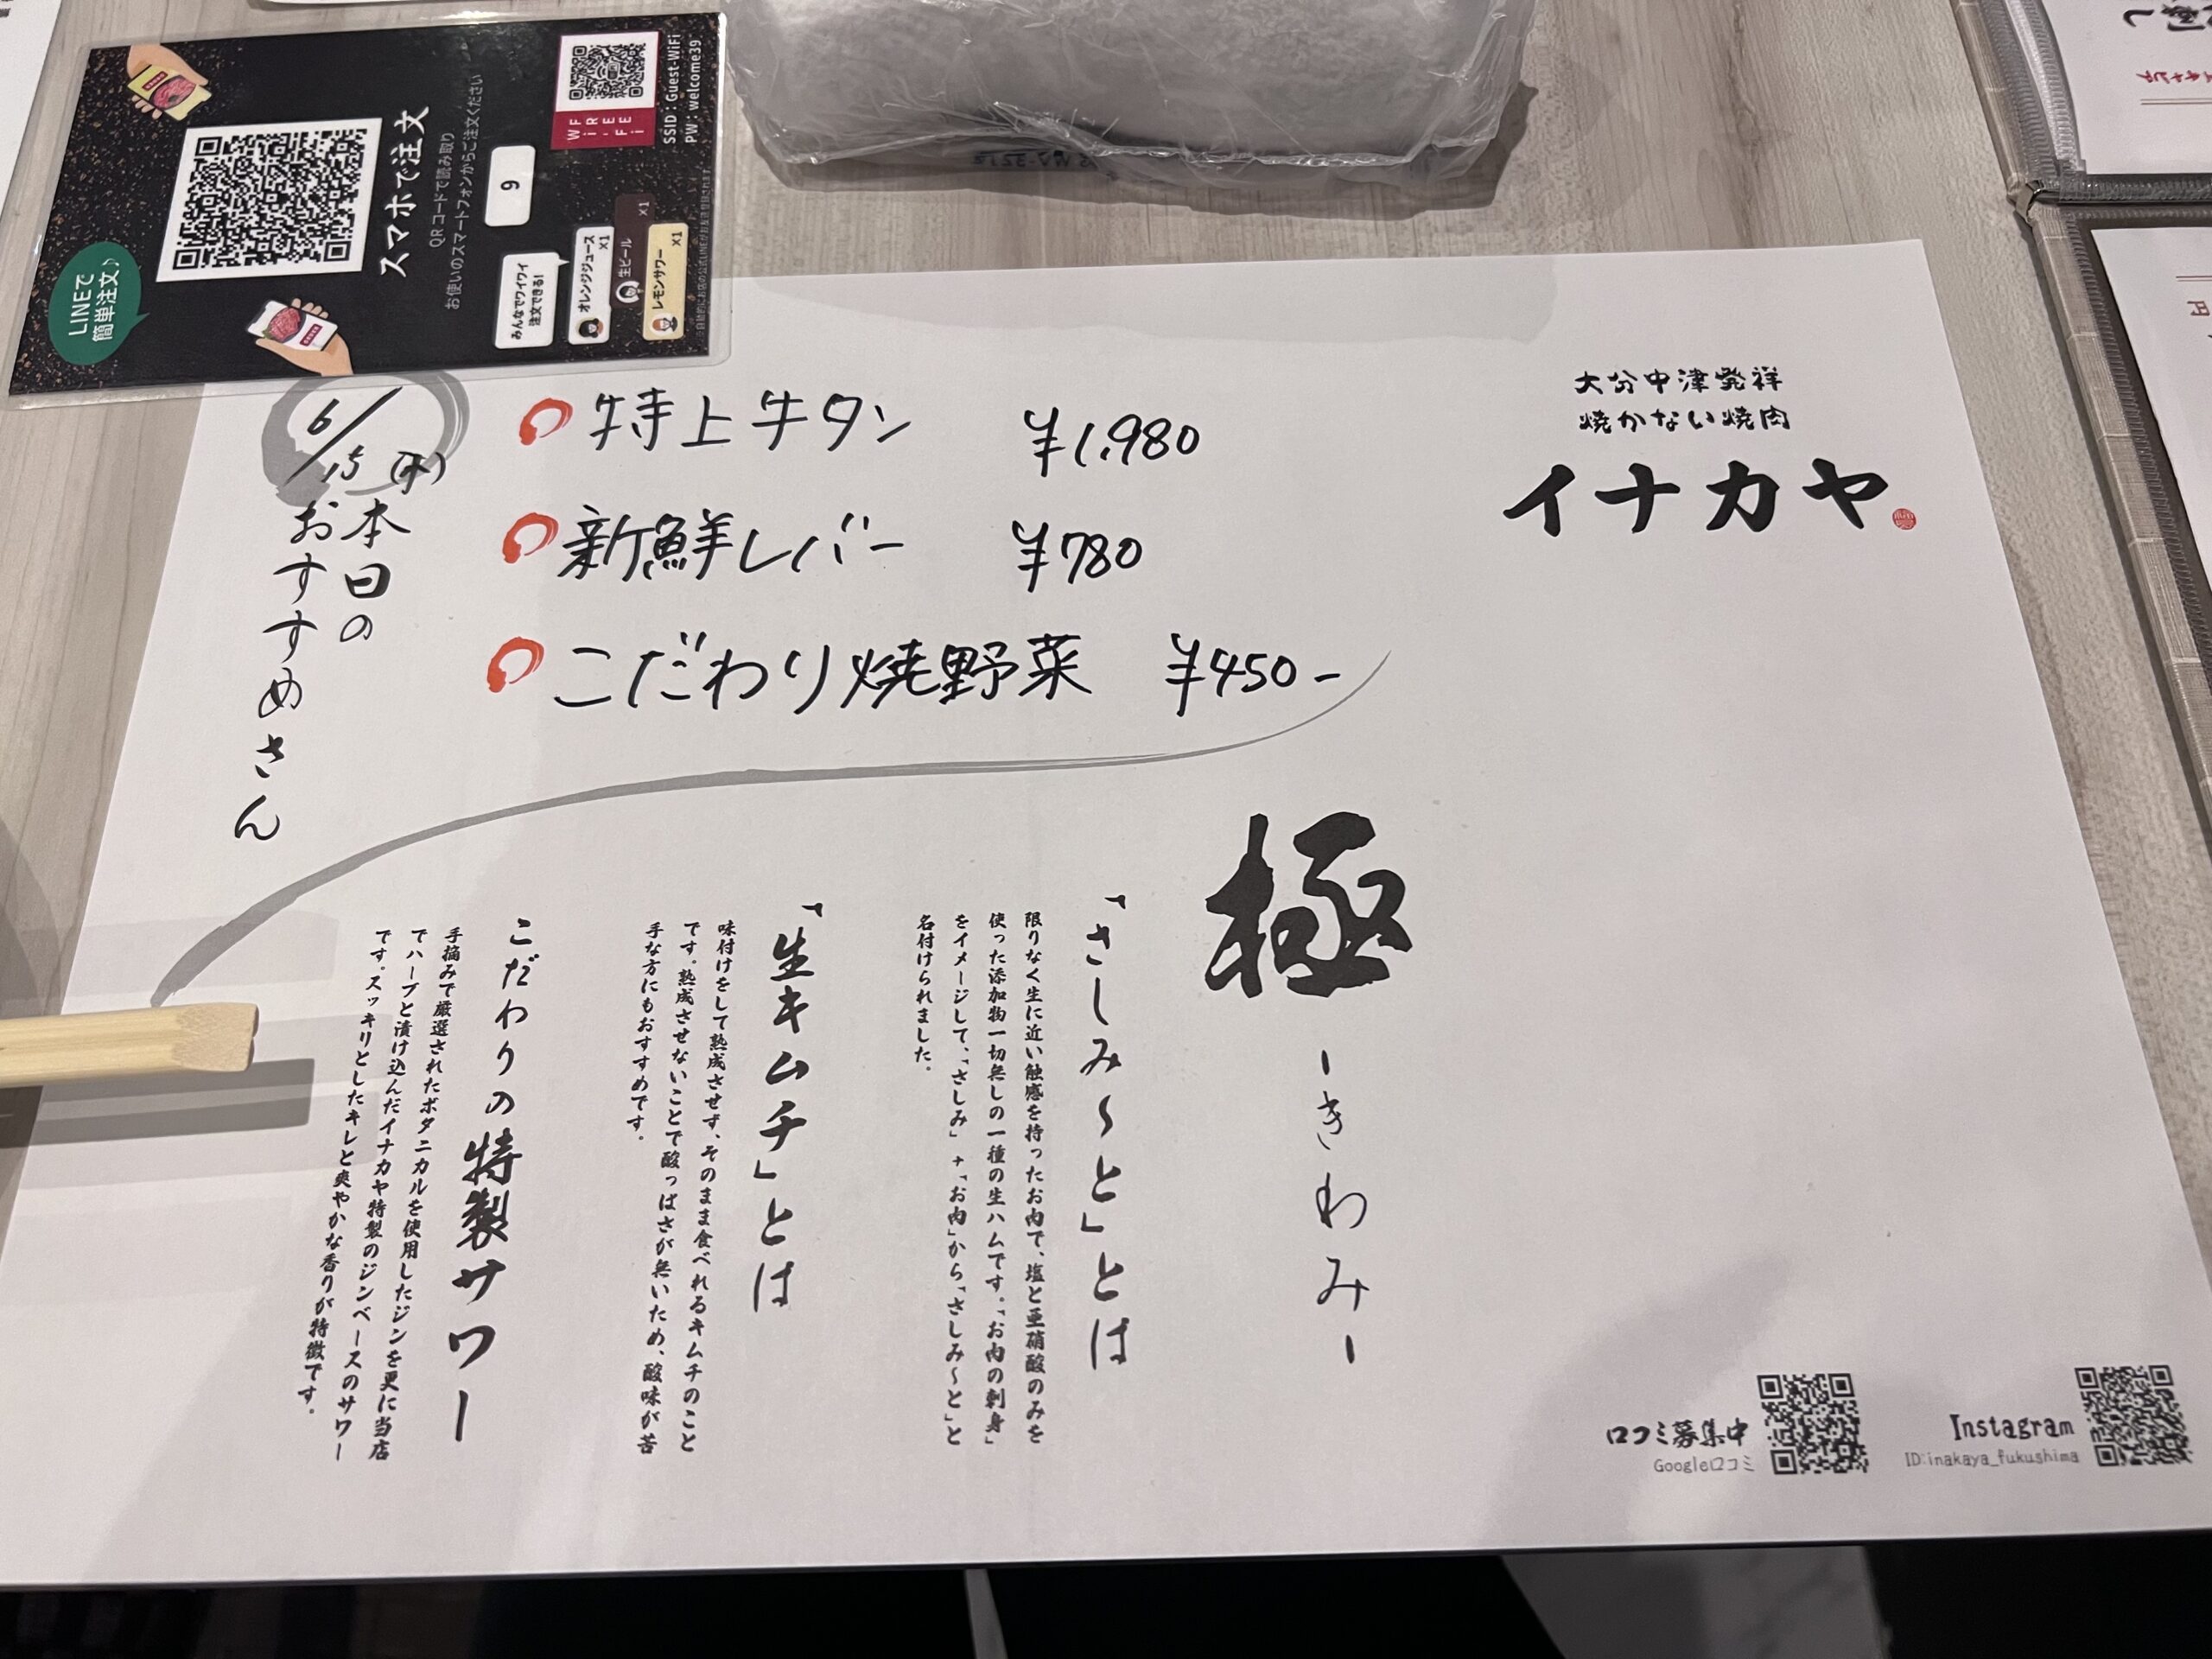 LINEで
簡単注文♪
スマホで注文
QRコードで読み取り
お使いのスマートフォンからご注文ください
9
みんなでワイワイ
注文できる!
オレンジジュース ×1
生ビール ×1
レモンサワー ×1
FREE
WiFi
SSID : Guest-WiFi
PW : welcome39
大分中津発祥
焼かない焼肉
イナカヤ
6/15(木)
本日の
おすすめさん
特上牛タン ¥1,980
新鮮レバー ¥780
こだわり焼野菜 ¥450-
極
ーきわみー
「さしみ〜と」とは
限りなく生に近い触感を持ったお肉で、塩と亜硝酸のみを
使った添加物一切無しの一種の生ハムです。「お肉の刺身」
をイメージして、「さしみ」+「お肉」から「さしみ〜と」と
名付けられました。
「生キムチ」とは
味付けをして熟成させず、そのまま食べれるキムチのこと
です。熟成させないことで酸っぱさが無いため、酸味が苦
手な方にもおすすめです。
こだわりの特製サワー
手摘みで厳選されたボタニカルを使用したジンを更に当店
でハーブと漬け込んだイナカヤ特製のジンベースのサワー
です。スッキリとしたキレと爽やかな香りが特徴です。
口コミ募集中
Google口コミ
Instagram
ID:inakaya_fukushima
円